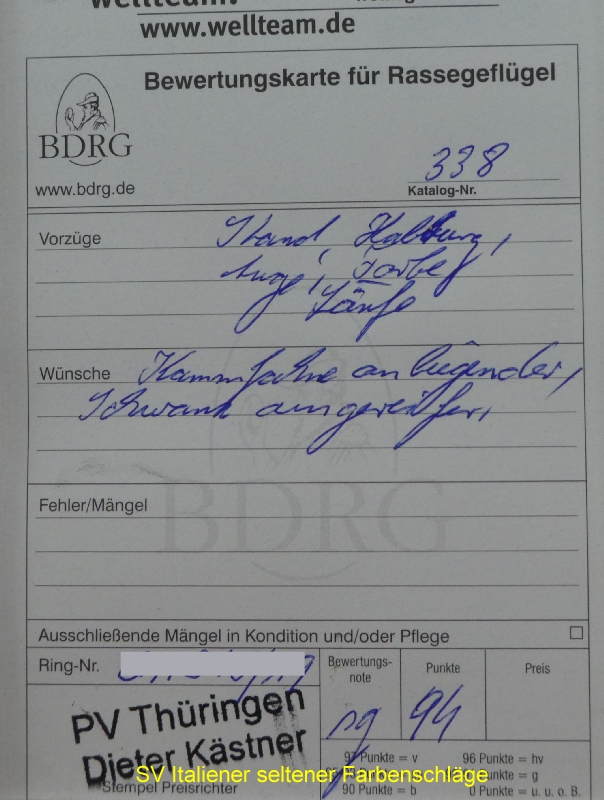 www.wellteam.de
Bewertungskarte für Rassegeflügel
BDRG
www.bdrg.de
338
Katalog-Nr.
Vorzüge Stand, Haltung,
Auge, Farbe,
Läufe
Wünsche Kammfahne anliegender,
Schwanz ausgereifter,
BDRG
Fehler/Mängel
Ausschließende Mängel in Kondition und/oder Pflege
Ring-Nr.
Bewertungs-
note
Punkte
Preis
sg 94
PV Thüringen
Dieter Kästner
Stempel Preisrichter
97 Punkte = v 96 Punkte = hv
Punkte = g
90 Punkte = b 0 Punkte = u. u. o. B.
SV Italiener seltener Farbenschläge